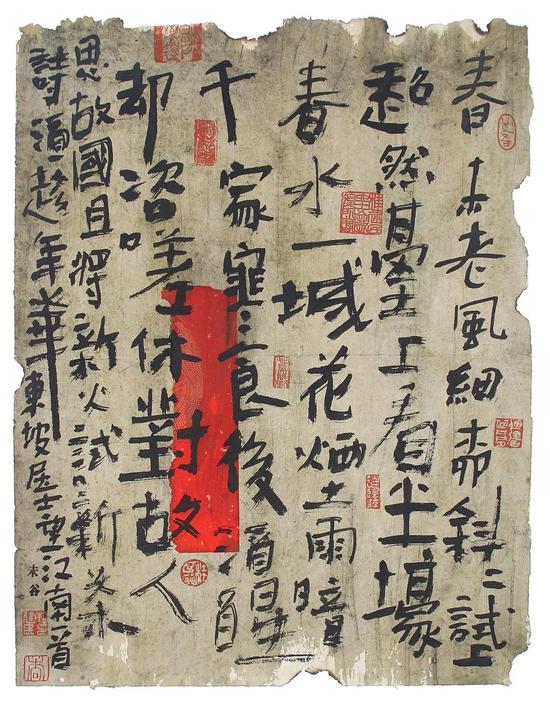 春未老風細柳斜斜試上
超然臺上看半壕
春水一城花烟雨暗
千家寒食後酒醒
却咨嗟休對故人
思故國且將新火試新茶
詩酒趁年華東坡居士望江南一首
未谷